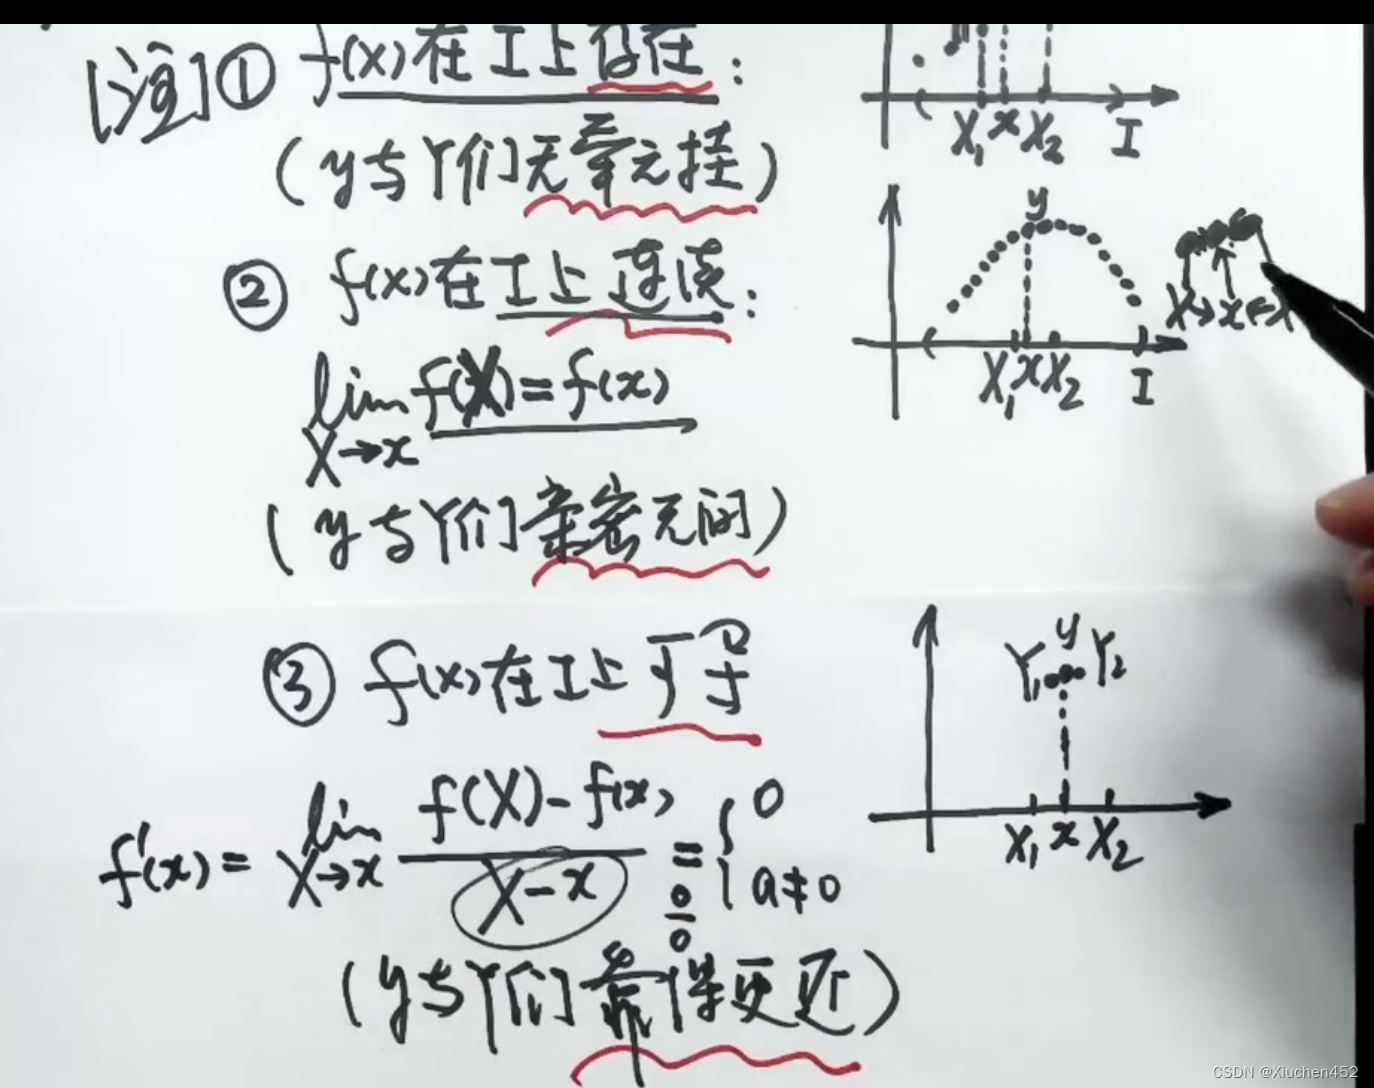 [注]① f(x)在I上存在:
(y与Y们无牵无挂)
② f(x)在I上连续:
lim f(X)=f(x)
X→x
(y与Y们亲密无间)
③ f(x)在I上可导
f'(x)= lim X→x f(X)-f(x) / X-x = 0/0 { 0
a≠0
(y与Y们靠得更近)
X₁ x X₂ I
y
X→x←X
X₁ x X₂ I
y
Y₁ Y₂
X₁ x X₂
CSDN @Xiuchen452